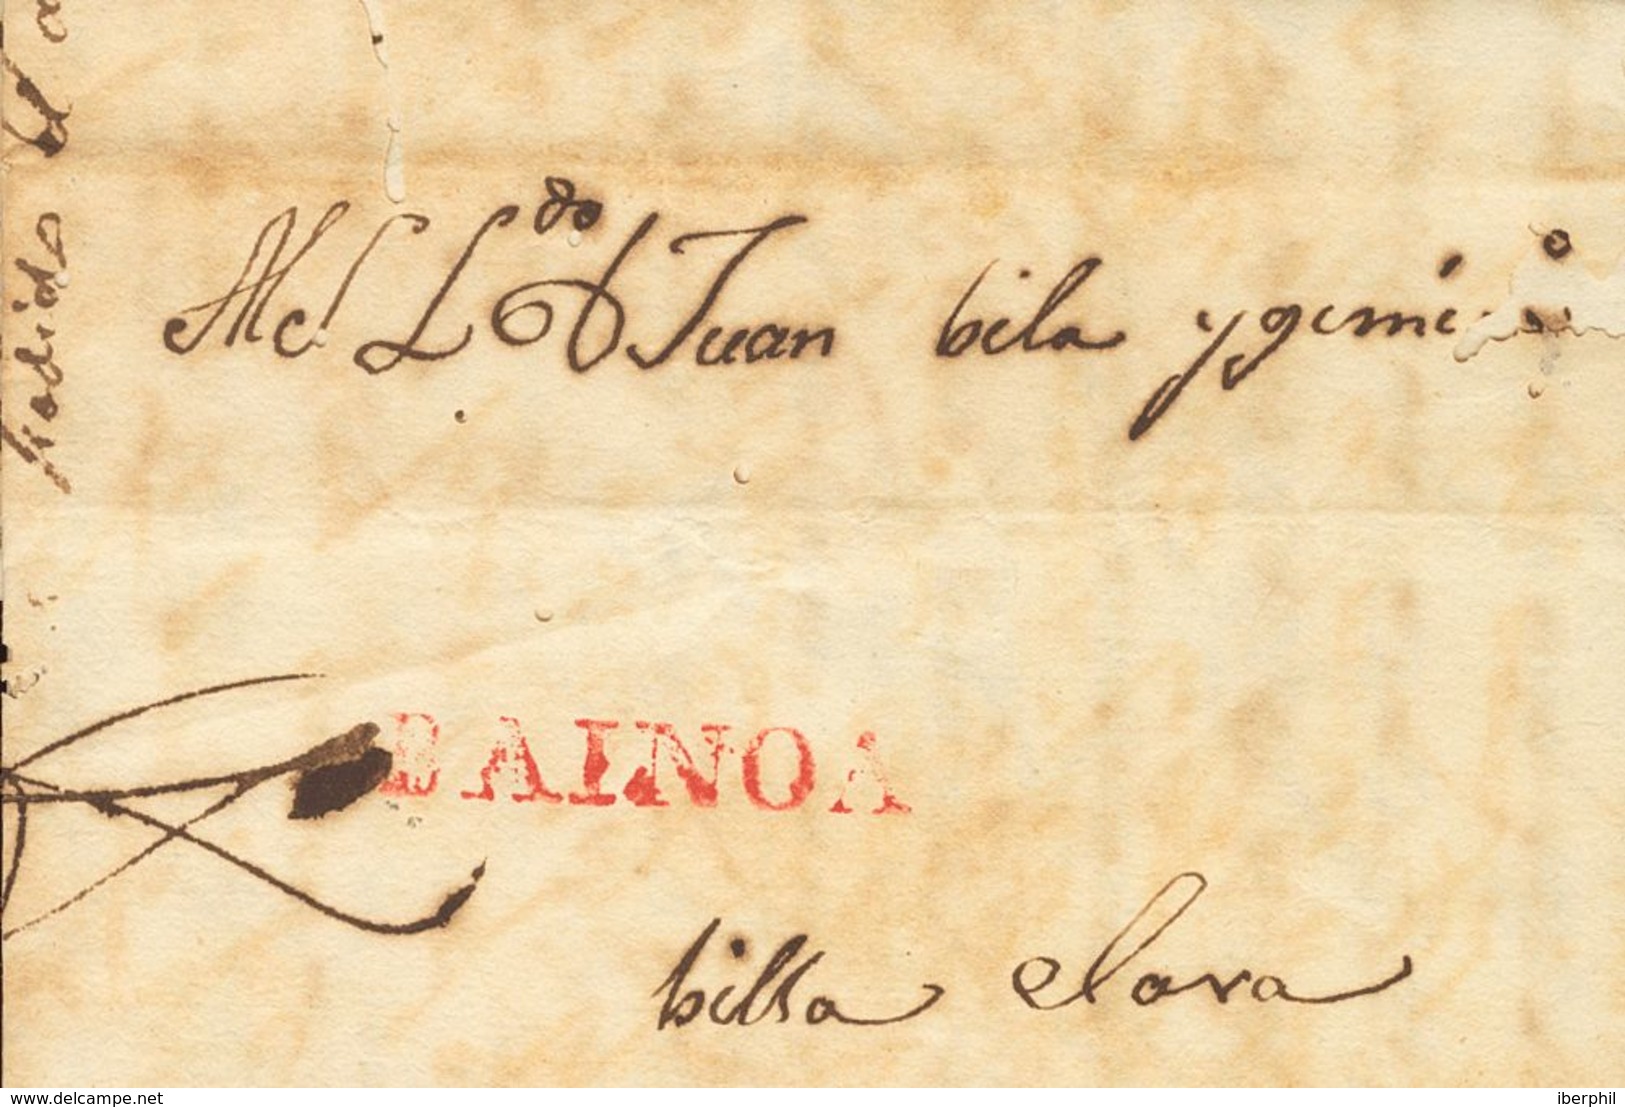 Al L.do D Juan bila y gimé
BAINOA
billa clara
www.delcampe.net
iberphil